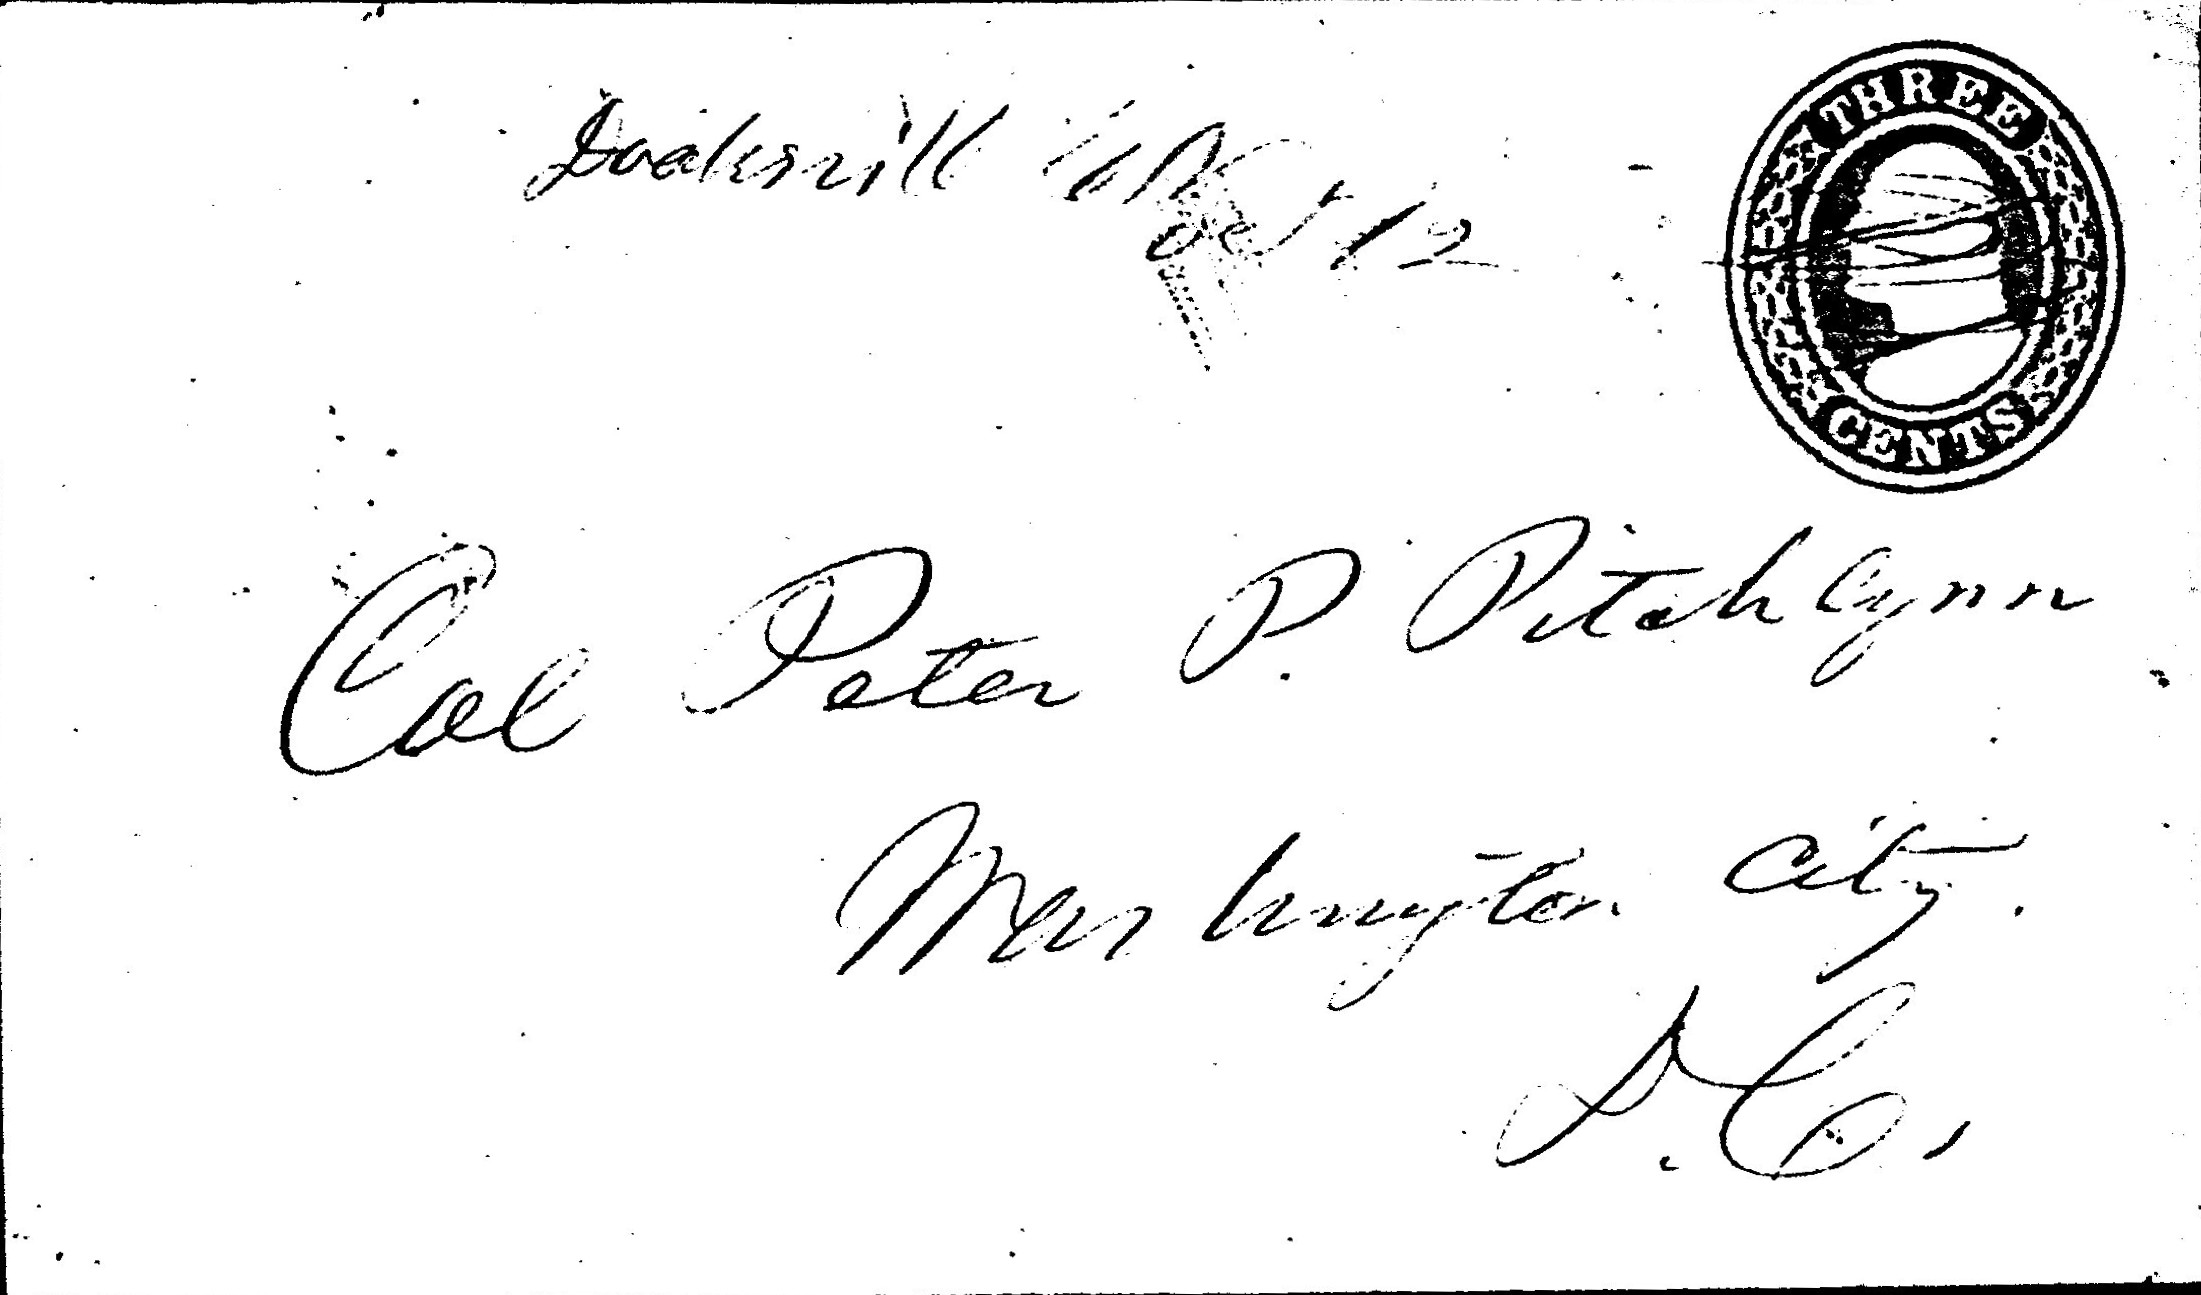 Doaksvill
Oct 12
THREE
CENTS
Col Peter P. Pitchlynn
Washington City.
D.C.